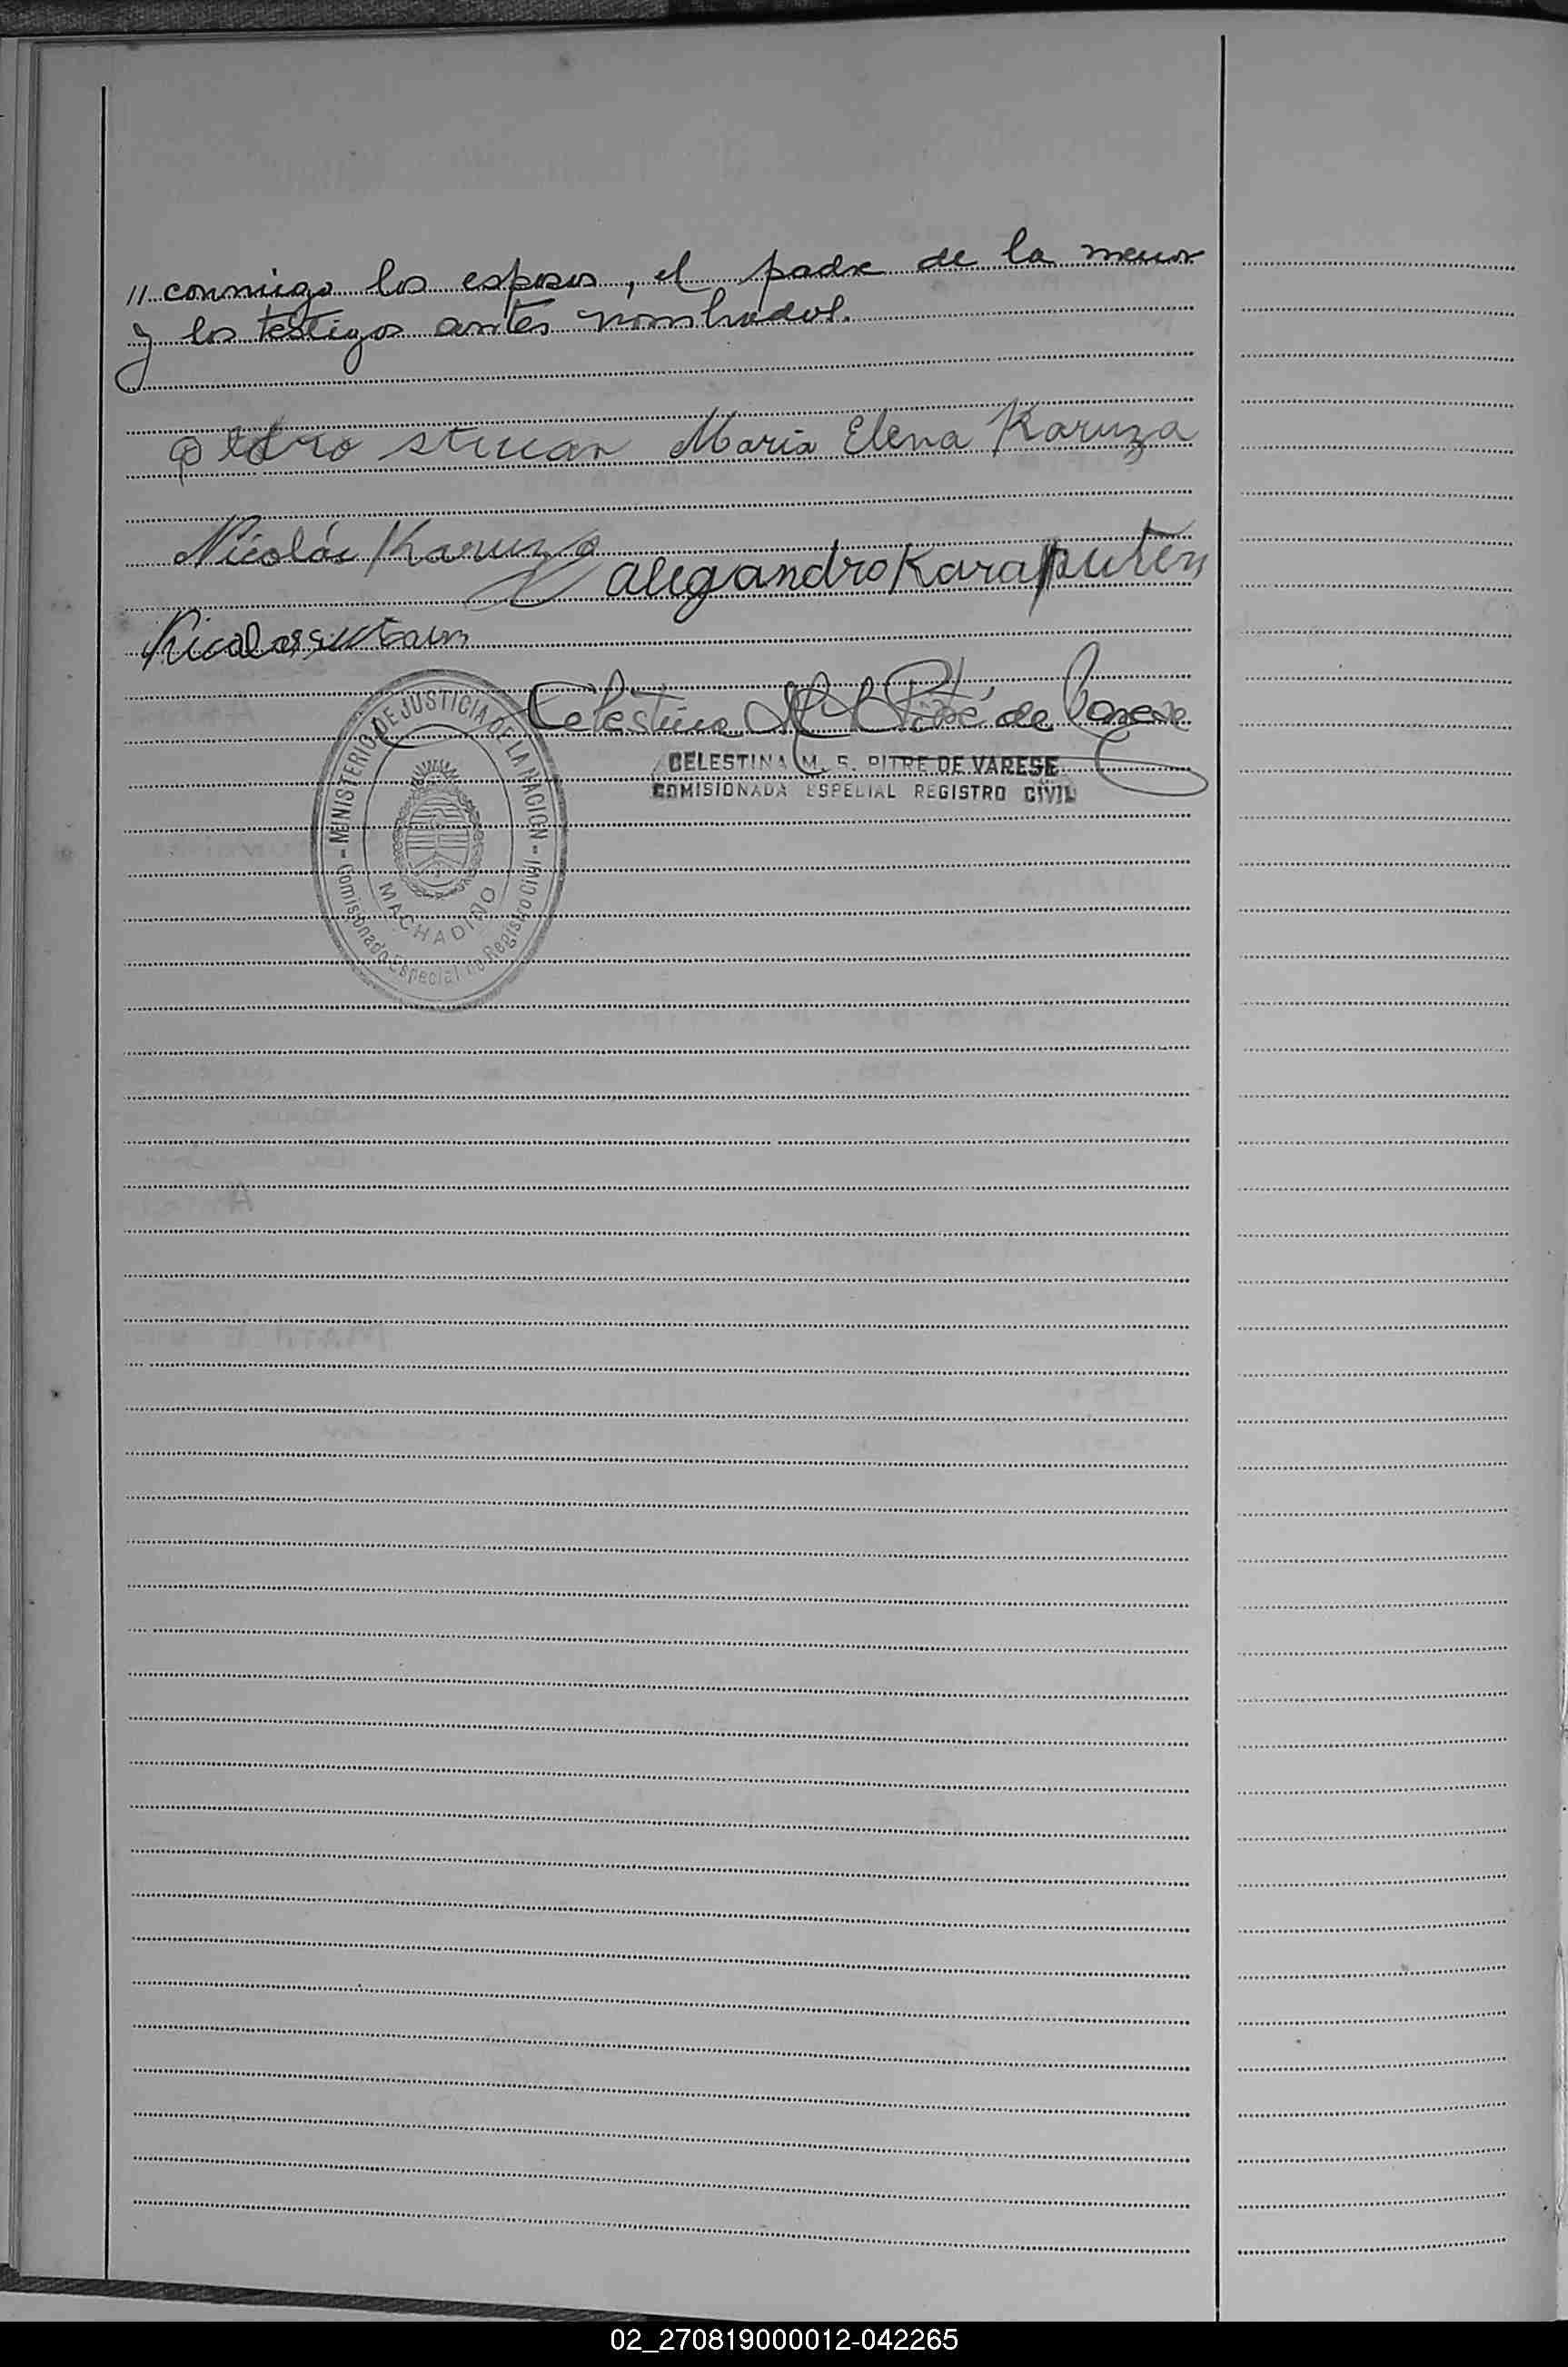 // conmigo los esposos, el padre de la menor
y los testigos antes nombrados.
Maria Elena Karuza
Nicolás Karuza
alegandro Karaputen
Celestina M. S. Pitré de Varese
CELESTINA M. S. PITRE DE VARESE
COMISIONADA ESPECIAL REGISTRO CIVIL
- MINISTERIO DE JUSTICIA DE LA NACION -
MACHADINO
Comisionado Especial no Registro Civil
02_270819000012-042265